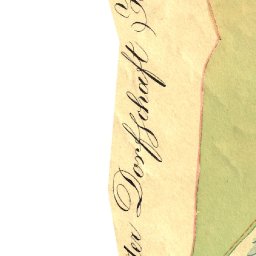 der Dorfschaft